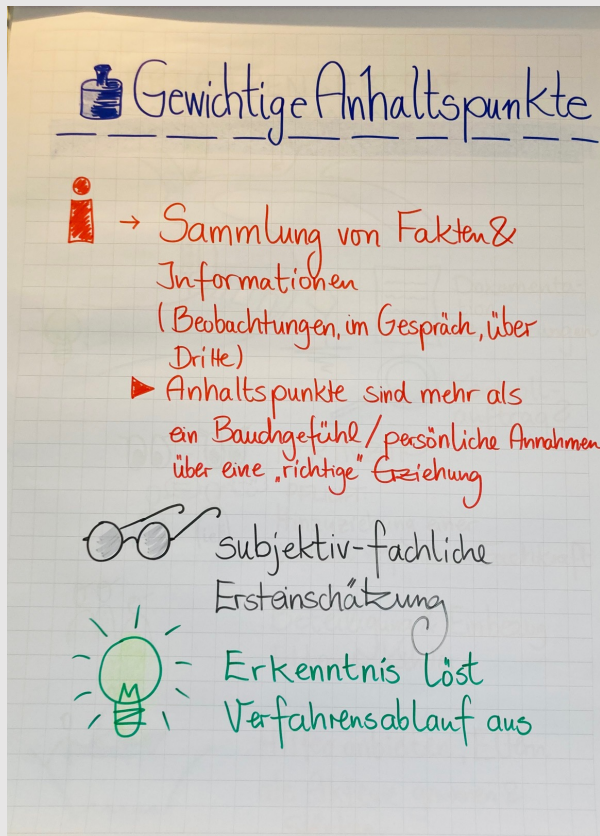 Gewichtige Anhaltspunkte
→ Sammlung von Fakten &
Informationen
(Beobachtungen, im Gespräch, über
Dritte)
▶ Anhaltspunkte sind mehr als
ein Bauchgefühl/persönliche Annahmen
über eine „richtige" Erziehung
subjektiv-fachliche
Ersteinschätzung
Erkenntnis löst
Verfahrensablauf aus